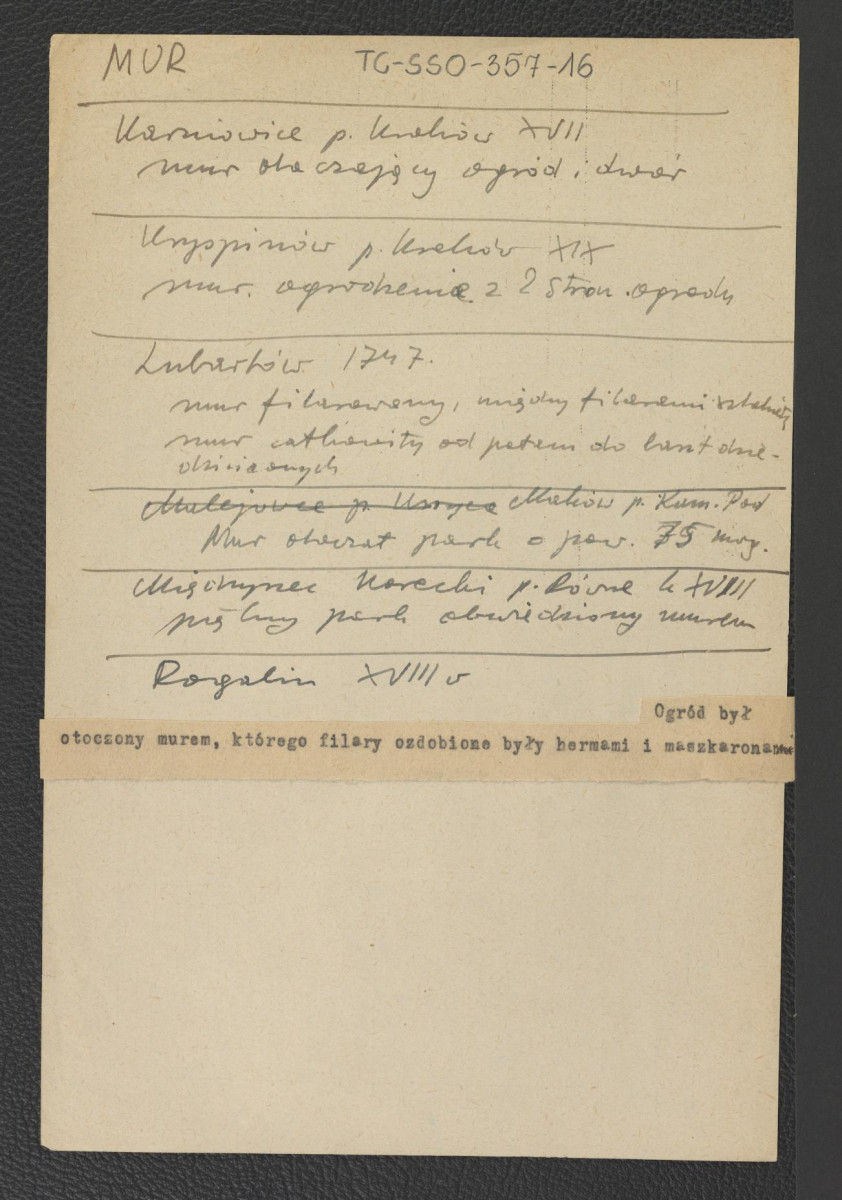 MUR TG-SSO-357-16
Karniowice p. Kraków XVII
mur otaczający ogród i dwór
Kryspinów p. Kraków XIX
mur. ogrodzenie z 2 stron ogrodu
Lubartów 1747.
mur filarowany, między filarami sztakiety
mur całkowity od
dzińcowych
Malejowce p. Uszyca Maków p. Kam. Pod
Mur otaczał park o pow. 75 morg.
Międzyrzec Korecki p. Równe k XVIII
piękny park obwiedziony murem
Rogalin XVIII w
Ogród był
otoczony murem, którego filary ozdobione były hermami i maszkaronami